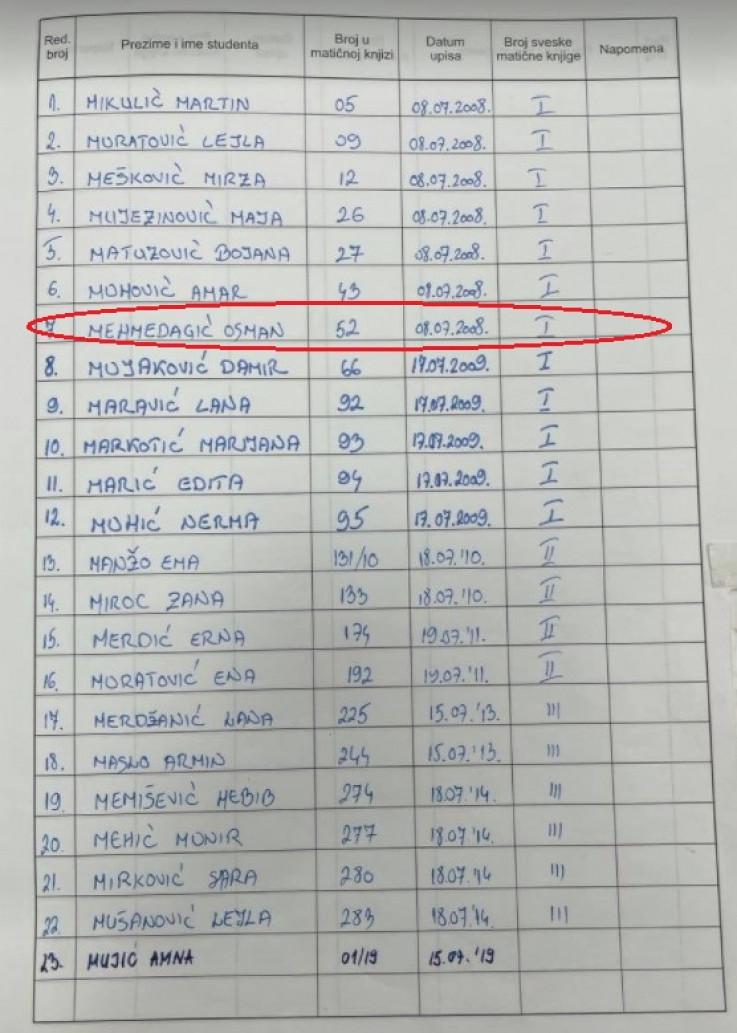 Red. broj Prezime i ime studenta Broj u matičnoj knjizi Datum upisa Broj sveske matične knjige Napomena
1. MIKULIĆ MARTIN 05 08.07.2008. I
2. MURATOVIĆ LEJLA 09 08.07.2008. I
3. MEŠKOVIĆ MIRZA 12 08.07.2008. I
4. MUJEZINOVIĆ MAJA 26 08.07.2008. I
5. MATUZOVIĆ BOJANA 27 08.07.2008. I
6. MUHOVIĆ AMAR 43 08.07.2008. I
7. MEHMEDAGIĆ OSMAN 52 08.07.2008. I
8. MUJAKOVIĆ DAMIR 66 17.07.2009. I
9. MARAVIĆ LANA 92 17.07.2009. I
10. MARKOTIĆ MARIJANA 93 17.07.2009. I
11. MARIĆ EDITA 94 17.07.2009. I
12. MUHIĆ NERMA 95 17.07.2009. I
13. MANŽO EMA 131/10 18.07.'10. II
14. MIROC ZANA 133 18.07.'10. II
15. MERDIĆ ERNA 174 19.07.'11. II
16. MORATOVIĆ ENA 192 19.07.'11. II
17. MERDŽANIĆ LANA 225 15.07.'13. III
18. MASLO ARMIN 244 15.07.'13. III
19. MEMIŠEVIĆ HEBIB 274 18.07.'14. III
20. MEHIĆ MUNIR 277 18.07.'14. III
21. MIRKOVIĆ SARA 280 18.07.'14 III
22. MUŠANOVIĆ LEJLA 283 18.07.'14. III
23. MUJIĆ AMNA 01/19 15.07.'19